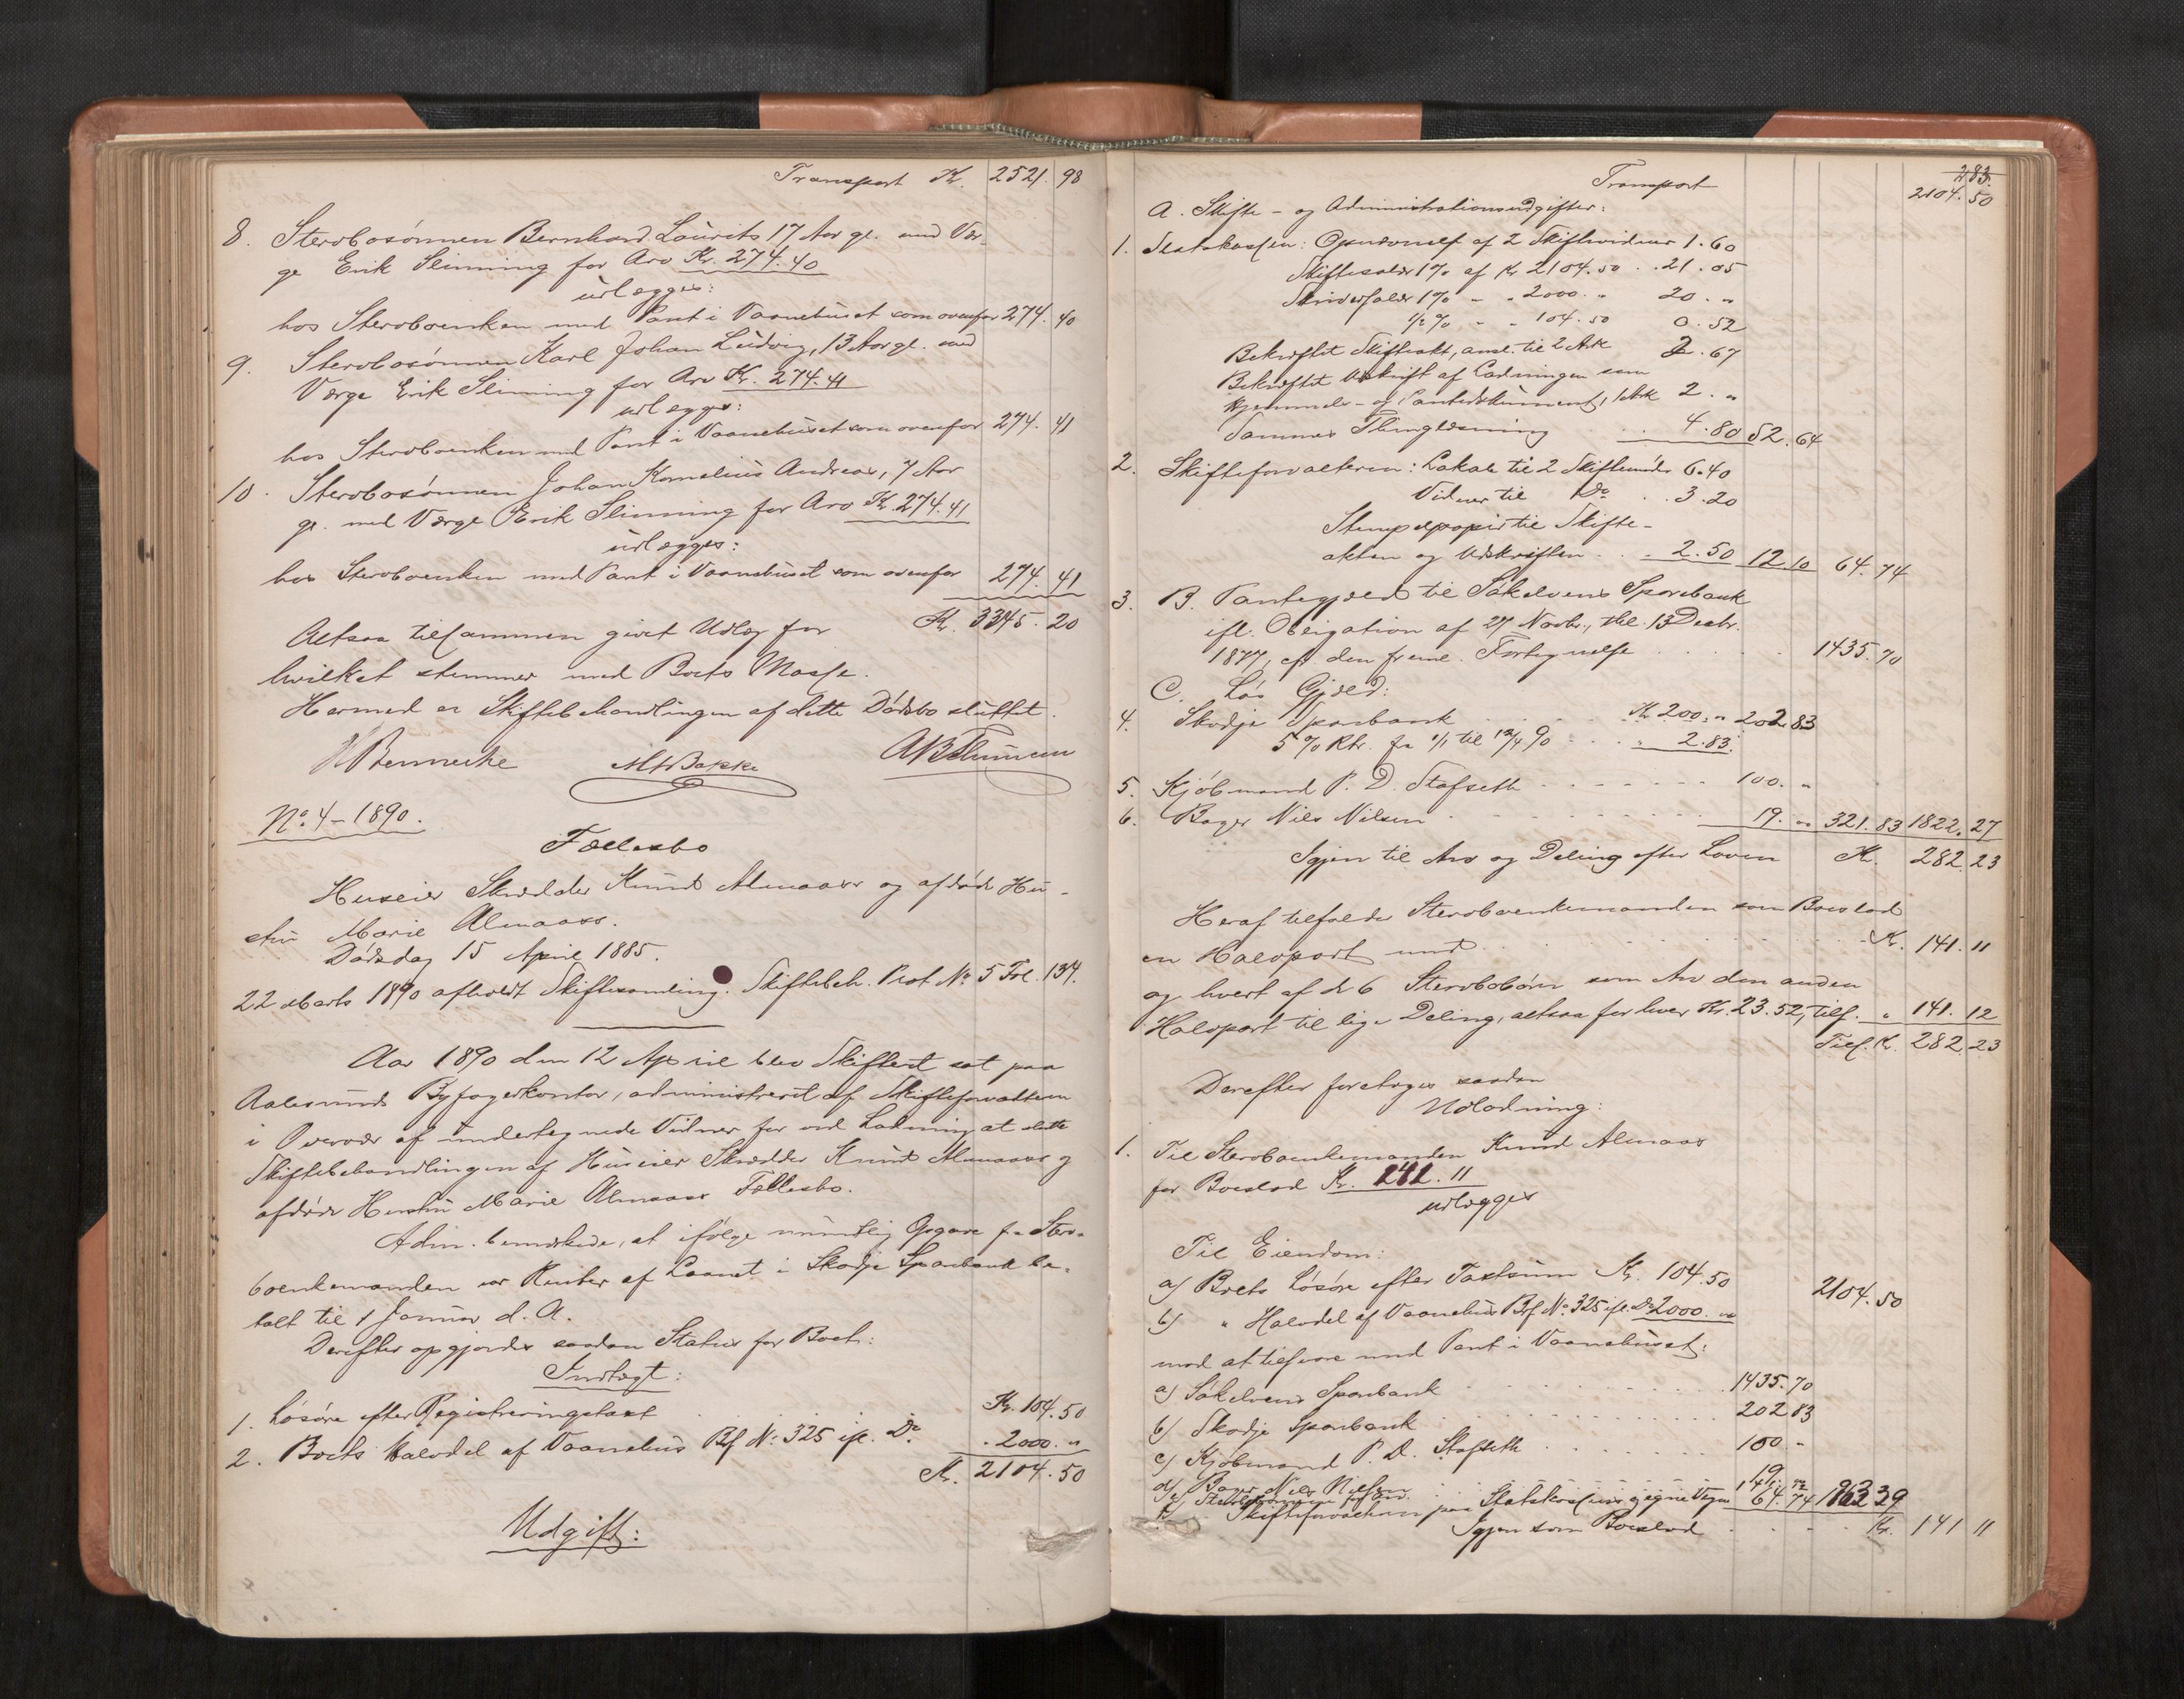 Transport Kr. 2521. 98
8. Sterbosønnen Bernhard Laurits 17 Aar gl. med Vær-
ge Erik Slinning for Arv Kr. 274.40
udlægges:
hos Sterboenken med Pant i Vaanehuset som ovenfor 274. 40
9. Sterbosønnen Karl Johan Ludvig, 13 Aar gl. med
Værge Erik Slinning for Arv Kr. 274.41
udlægges:
hos Sterboenken med Pant i Vaanehuset som ovenfor 274. 41
10. Sterbosønnen Johan Kornelius Andreas, 7 Aar
gl. med Værge Erik Slinning for Arv Kr. 274.41
udlægges:
hos Sterboenken med Pant i Vaanehuset som ovenfor 274. 41
Altsaa tilsammen givet Udlæg for Kr. 3345. 20
hvilket stemmer med Boets Masse.
Hermed er Skiftebehandlingen af dette Dødsbo sluttet.
No. 4 - 1890.
Fællesbo
Huseier Skrædder Knud Almaass og afdøde Hu-
stru Marie Almaass.
Dødsdag 15 April 1885.
22 Marts 1890 afholdt Skiftesamling. Skiftebeh. Prot No. 5 Fol. 134.
Aar 1890 den 12 April blev Skifteret sat paa
Aalesunds Byfogedkontor, administreret af Skifteforvalteren
i Overvær af undertegnede Vidner for ved Lodning at slutte
Skiftebehandlingen af Huseier Skrædder Knud Almaass og
afdøde Hustru Marie Almaass Fællesbo.
Adm. bemærkede, at ifølge mundtlig Opgave fra Ster-
boenkemanden var Renter af Laanet i Skodje Sparebank be-
talt til 1 Januar d. A.
Derefter opgjordes saadan Status for Boet:
Indtægt:
1. Løsøre efter Registreringstaxt Kr. 104. 50
2. Boets Halvdel af Vaanehus Bf No. 325 ifl. Do. 2000. "
Kr. 2104. 50
Udgift:
283.
Transport 2104. 50
A. Skifte- og Administrationsudgifter:
1. Statskassen: Opnævnelse af 2 Skiftevidner 1.60
Skiftesalær 1% af Kr 2104.50 . . 21.05
Skriversalær 1% " " 2000. " 20. "
1/2 % " " 104.50 0.52
Bekræftet Skifteakt, ansl. til 2 Ark 2.67
Bekræftet Udskrift af Lodningen som
Hjemmels- og Pantedokument, 1 Ark 2. "
Sammes Thinglæsning . . 4.80 52.64
2. Skifteforvalteren: Lokale til 2 Skiftemøder 6.40
Vidner til Do . . 3.20
Stempelpapir til Skifte-
akten og Udskriften . . 2.50 12.10 64.74
3. B. Pantegjæld til Søkelvens Sparebank
ifl. Obligation af 27 Novbr., thl. 13 Decbr.
1877, eft. den freml. Fortegnelse 1435.70
C. Løs Gjæld:
4. Skodje Sparebank Kr 200. " 202.83
5 % Rtr. fra 1/1 til 12/4 90 2.83.
5. Kjøbmand P. D. Stafseth 100. "
6. Bager Nils Nilsen 19. " 321.83 1822.27
Igjen til Arv og Deling efter Loven Kr. 282.23
Heraf tilfalder Sterboenkemanden som Boeslod
en Halvpart med Kr. 141.11
og hvert af de 6 Sterbobørn som Arv den anden
Halvpart til lige Deling, altsaa for hver Kr. 23.52, tils. " 141.12
Tils. Kr. 282.23
Derefter foretoges saadan
Udlodning:
1. Til Sterboenkemanden Knud Almaas
for Boeslod Kr. 141.11
udlægges
Til Eiendom:
a) Boets Løsøre efter Taxtsum Kr. 104.50
b) " Halvdel af Vaanehus Bf. No. 325 ifl. Do 2000. " 2104.50
mod at tilsvare med Pant i Vaanehuset:
a) Søkelvens Sparebank 1435.70
b) Skodje Sparebank 202 83
c) Kjøbmand P. D. Stafseth 100 "
d) Bager Nils Nilsen 19. "
141. 12
f) Skifteforvalteren paa Statskassens og egne Vegne 64.74 1963 39
Igjen som Boeslod Kr. 141 11